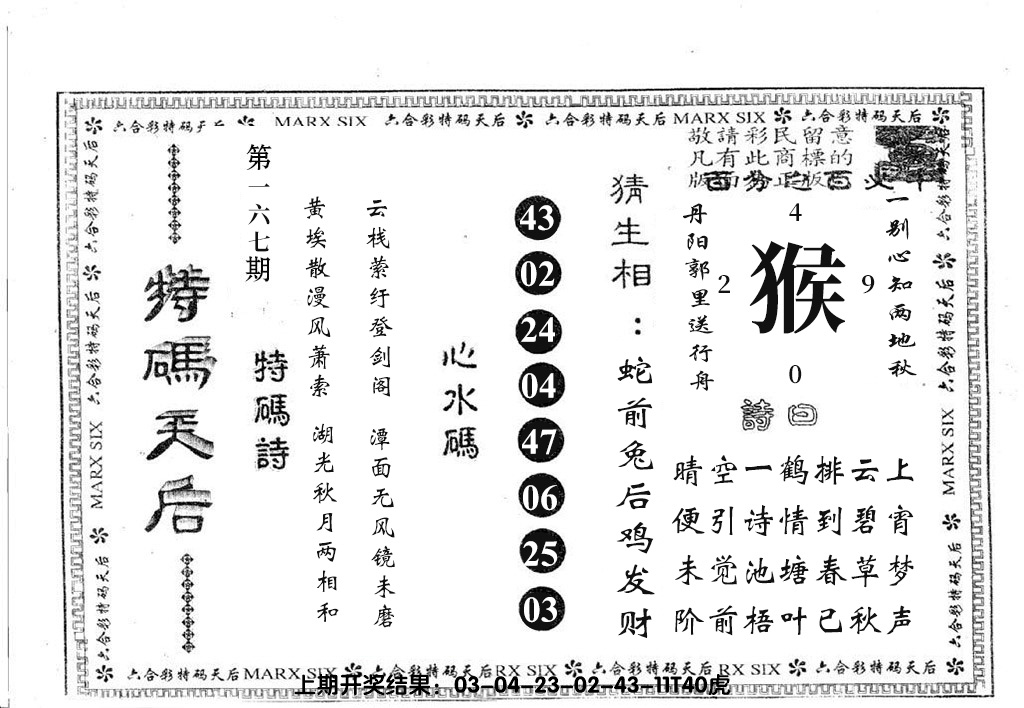 六合彩特码天后 MARX SIX 六合彩特码天后 六合彩特码天后 MARX SIX 六合彩特码天后
敬請彩民留意
凡有此商標的
版面為正版
一别心知两地秋
4
2 猴 9
0
丹阳郭里送行舟
詩曰
晴空一鹤排云上
便引诗情到碧宵
未觉池塘春草梦
阶前梧叶已秋声
猜生相：蛇前兔后鸡发财
43
02
24
04
47
06
25
03
心水碼
云栈萦纡登剑阁 潭面无风镜未磨
黄埃散漫风萧索 湖光秋月两相和
特碼詩
第一六七期
特碼天后
六合彩特码天后 六合彩特码天后 MARX SIX 六合彩特码天后
六合彩特码天后 六合彩特码天后 MARX SIX 六合彩特码天后
六合彩特码天后 MARX SIX 六合彩特码天后 六合彩特码天后 RX SIX 六合彩特码天后
上期开奖结果：03-04-23-02-43-11T40虎